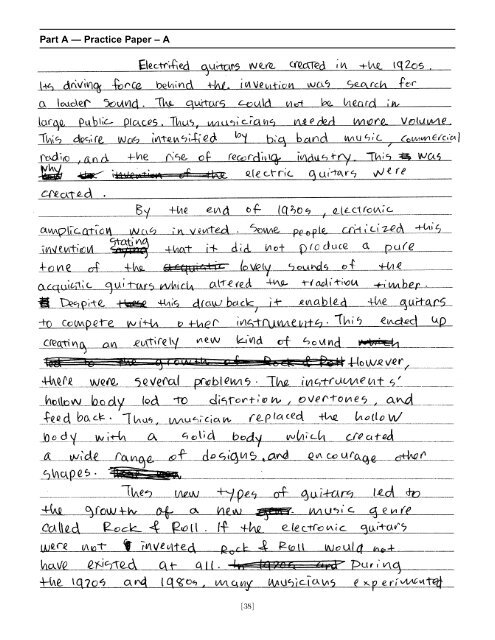 Part A — Practice Paper – A
Electrified guitars were created in the 1920s.
Its driving force behind the invention was search for
a louder sound. The guitars could not be heard in
large public places. Thus, musicians needed more volume.
This desire was intensified by big band music, commercial
radio, and the rise of recording industry. This was
why electric guitars were
created.
By the end of 1930s, electronic
amplication was invented. Some people criticized this
invention stating that it did not produce a pure
tone of the lovely sounds of the
acquistic guitars which altered the tradition timber.
Despite this drawback, it enabled the guitars
to compete with other instruments. This ended up
creating an entirely new kind of sound
However,
there were several problems. The instruments'
hollow body led to distortion, overtones, and
feedback. Thus, musician replaced the hollow
body with a solid body which created
a wide range of designs, and encourage other
shapes.
Thes new types of guitars led to
the growth of a new music genre
called Rock & Roll. If the electronic guitars
were not invented Rock & Roll would not
have existed at all. During
the 1970s and 1980s, many musicians experimented
[38]